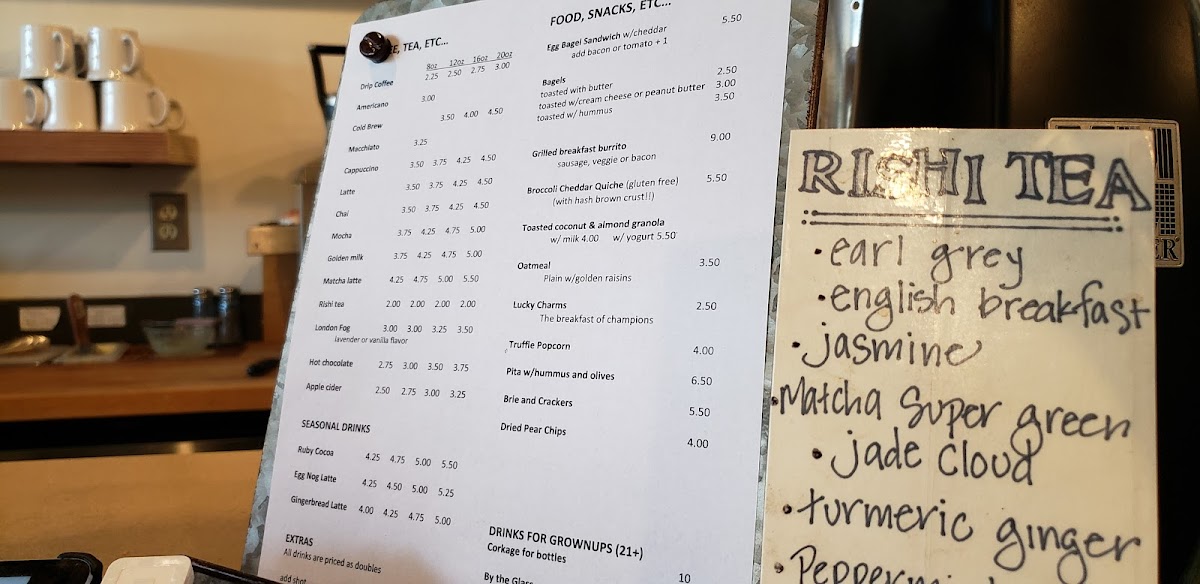 E, TEA, ETC...
8oz 12oz 16oz 20oz
Drip Coffee 2.25 2.50 2.75 3.00
Americano 3.00
Cold Brew 3.50 4.00 4.50
Macchiato 3.25
Cappuccino 3.50 3.75 4.25 4.50
Latte 3.50 3.75 4.25 4.50
Chai 3.50 3.75 4.25 4.50
Mocha 3.75 4.25 4.75 5.00
Golden milk 3.75 4.25 4.75 5.00
Matcha latte 4.25 4.75 5.00 5.50
Rishi tea 2.00 2.00 2.00 2.00
London Fog 3.00 3.00 3.25 3.50
lavender or vanilla flavor
Hot chocolate 2.75 3.00 3.50 3.75
Apple cider 2.50 2.75 3.00 3.25
SEASONAL DRINKS
Ruby Cocoa 4.25 4.75 5.00 5.50
Egg Nog Latte 4.25 4.50 5.00 5.25
Gingerbread Latte 4.00 4.25 4.75 5.00
EXTRAS
All drinks are priced as doubles
add shot
FOOD, SNACKS, ETC...
Egg Bagel Sandwich w/cheddar 5.50
add bacon or tomato + 1
Bagels
toasted with butter 2.50
toasted w/cream cheese or peanut butter 3.00
toasted w/ hummus 3.50
Grilled breakfast burrito 9.00
sausage, veggie or bacon
Broccoli Cheddar Quiche (gluten free) 5.50
(with hash brown crust!!)
Toasted coconut & almond granola
w/ milk 4.00 w/ yogurt 5.50
Oatmeal 3.50
Plain w/golden raisins
Lucky Charms 2.50
The breakfast of champions
Truffle Popcorn 4.00
Pita w/hummus and olives 6.50
Brie and Crackers 5.50
Dried Pear Chips 4.00
DRINKS FOR GROWNUPS (21+)
Corkage for bottles 10
By the Glass
RISHI TEA
• earl grey
• english breakfast
• jasmine
• Matcha Super green
• jade Cloud
• turmeric ginger
• Peppermin